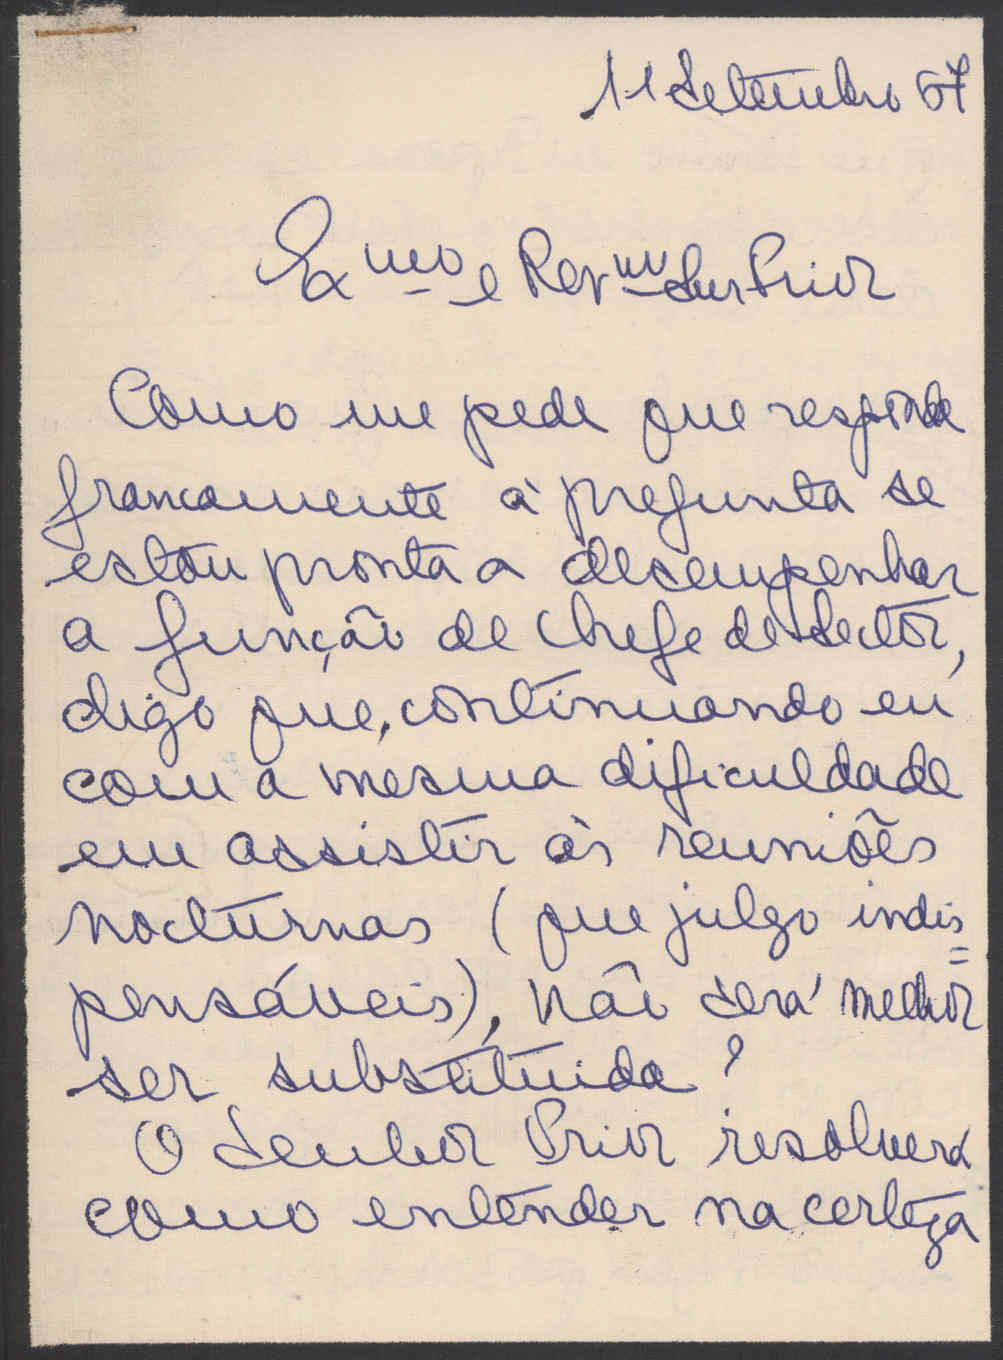 11 Setembro 67
Exmo e Revmo Snr Prior
Como me pede que responda
francamente à pregunta se
estou pronta a desempenhar
a função de chefe de sector,
digo que, continuando eu
com a mesma dificuldade
em assistir às reuniões
nocturnas (que julgo indis=
pensáveis), não será melhor
ser substituida?
O Senhor Prior resolverá
como entender na certeza